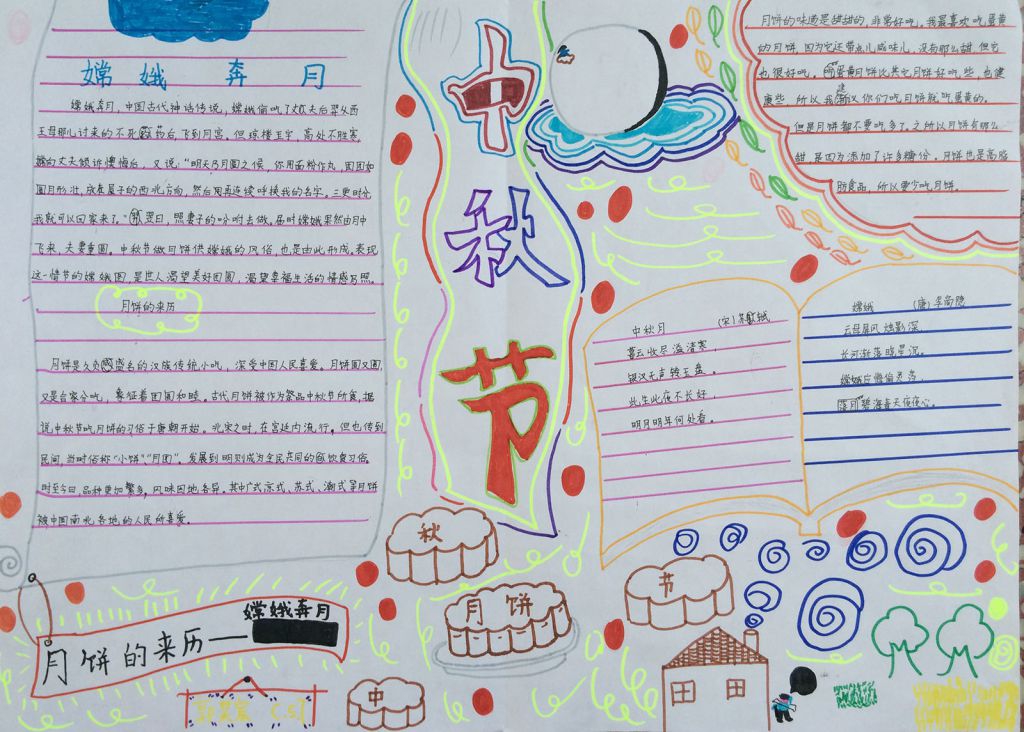 嫦娥奔月
嫦娥奔月，中国古代神话传说，嫦娥偷吃了丈夫后羿从西
王母那儿讨来的不死药后飞到月宫。但琼楼玉宇，高处不胜寒，
嫦向丈夫倾诉懊悔后，又说："明天乃月圆之候，你用面粉作丸，团团如
圆月形壮，放在屋子的西北方向，然后再连续呼唤我的名字。三更时分，
我就可以回家来了。"翌日，照妻子的吩咐去做。届时嫦娥果然由月中
飞来，夫妻重圆。中秋节做月饼供嫦娥的风俗，也是由此形成。表现
这一情节的嫦娥图，是世人渴望美好团圆，渴望幸福生活的情感写照。
月饼的来历
月饼是久负盛名的汉族传统小吃，深受中国人民喜爱。月饼圆又圆，
又是合家分吃，象征着团圆和睦。古代月饼被作为祭品中秋节所食，据
说中秋节吃月饼的习俗于唐朝开始。北宋之时，在宫廷内流行。但也传到
民间，当时俗称"小饼""月团"。发展到明则成为全民共同的饮食习俗。
时至今日，品种更加繁多，风味因地各异。其中广式、京式、苏式、潮式等月饼
被中国南北各地的人民所喜爱。
中秋节
月饼的味道是甜甜的，非常好吃。我最喜欢吃蛋黄
的月饼，因为它还带点儿咸味儿，没有那么甜，但它
也很好吃，而蛋黄月饼比其它月饼好吃些，也健
康些，所以我建议你们吃月饼就吃蛋黄的。
但是月饼都不要吃多了。之所以月饼有那么
甜，是因为添加了许多糖份。月饼也是高脂
肪食品，所以要少吃月饼。
中秋月 （宋）苏轼
暮云收尽溢清寒，
银汉无声转玉盘。
此生此夜不长好，
明月明年何处看。
嫦娥 （唐）李商隐
云母屏风烛影深，
长河渐落晓星沉。
嫦娥应悔偷灵药，
碧海青天夜夜心。
秋
月饼
节
中
月饼的来历—
嫦娥奔月